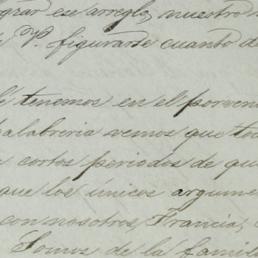 grar ese arreglo, nuestro
V. figurarse cuanto de
tenemos en el porveni
palabreria vemos que to
cortos periodos de qui
que los únicos argume
con nosotros, Francia,
Somos de la famili